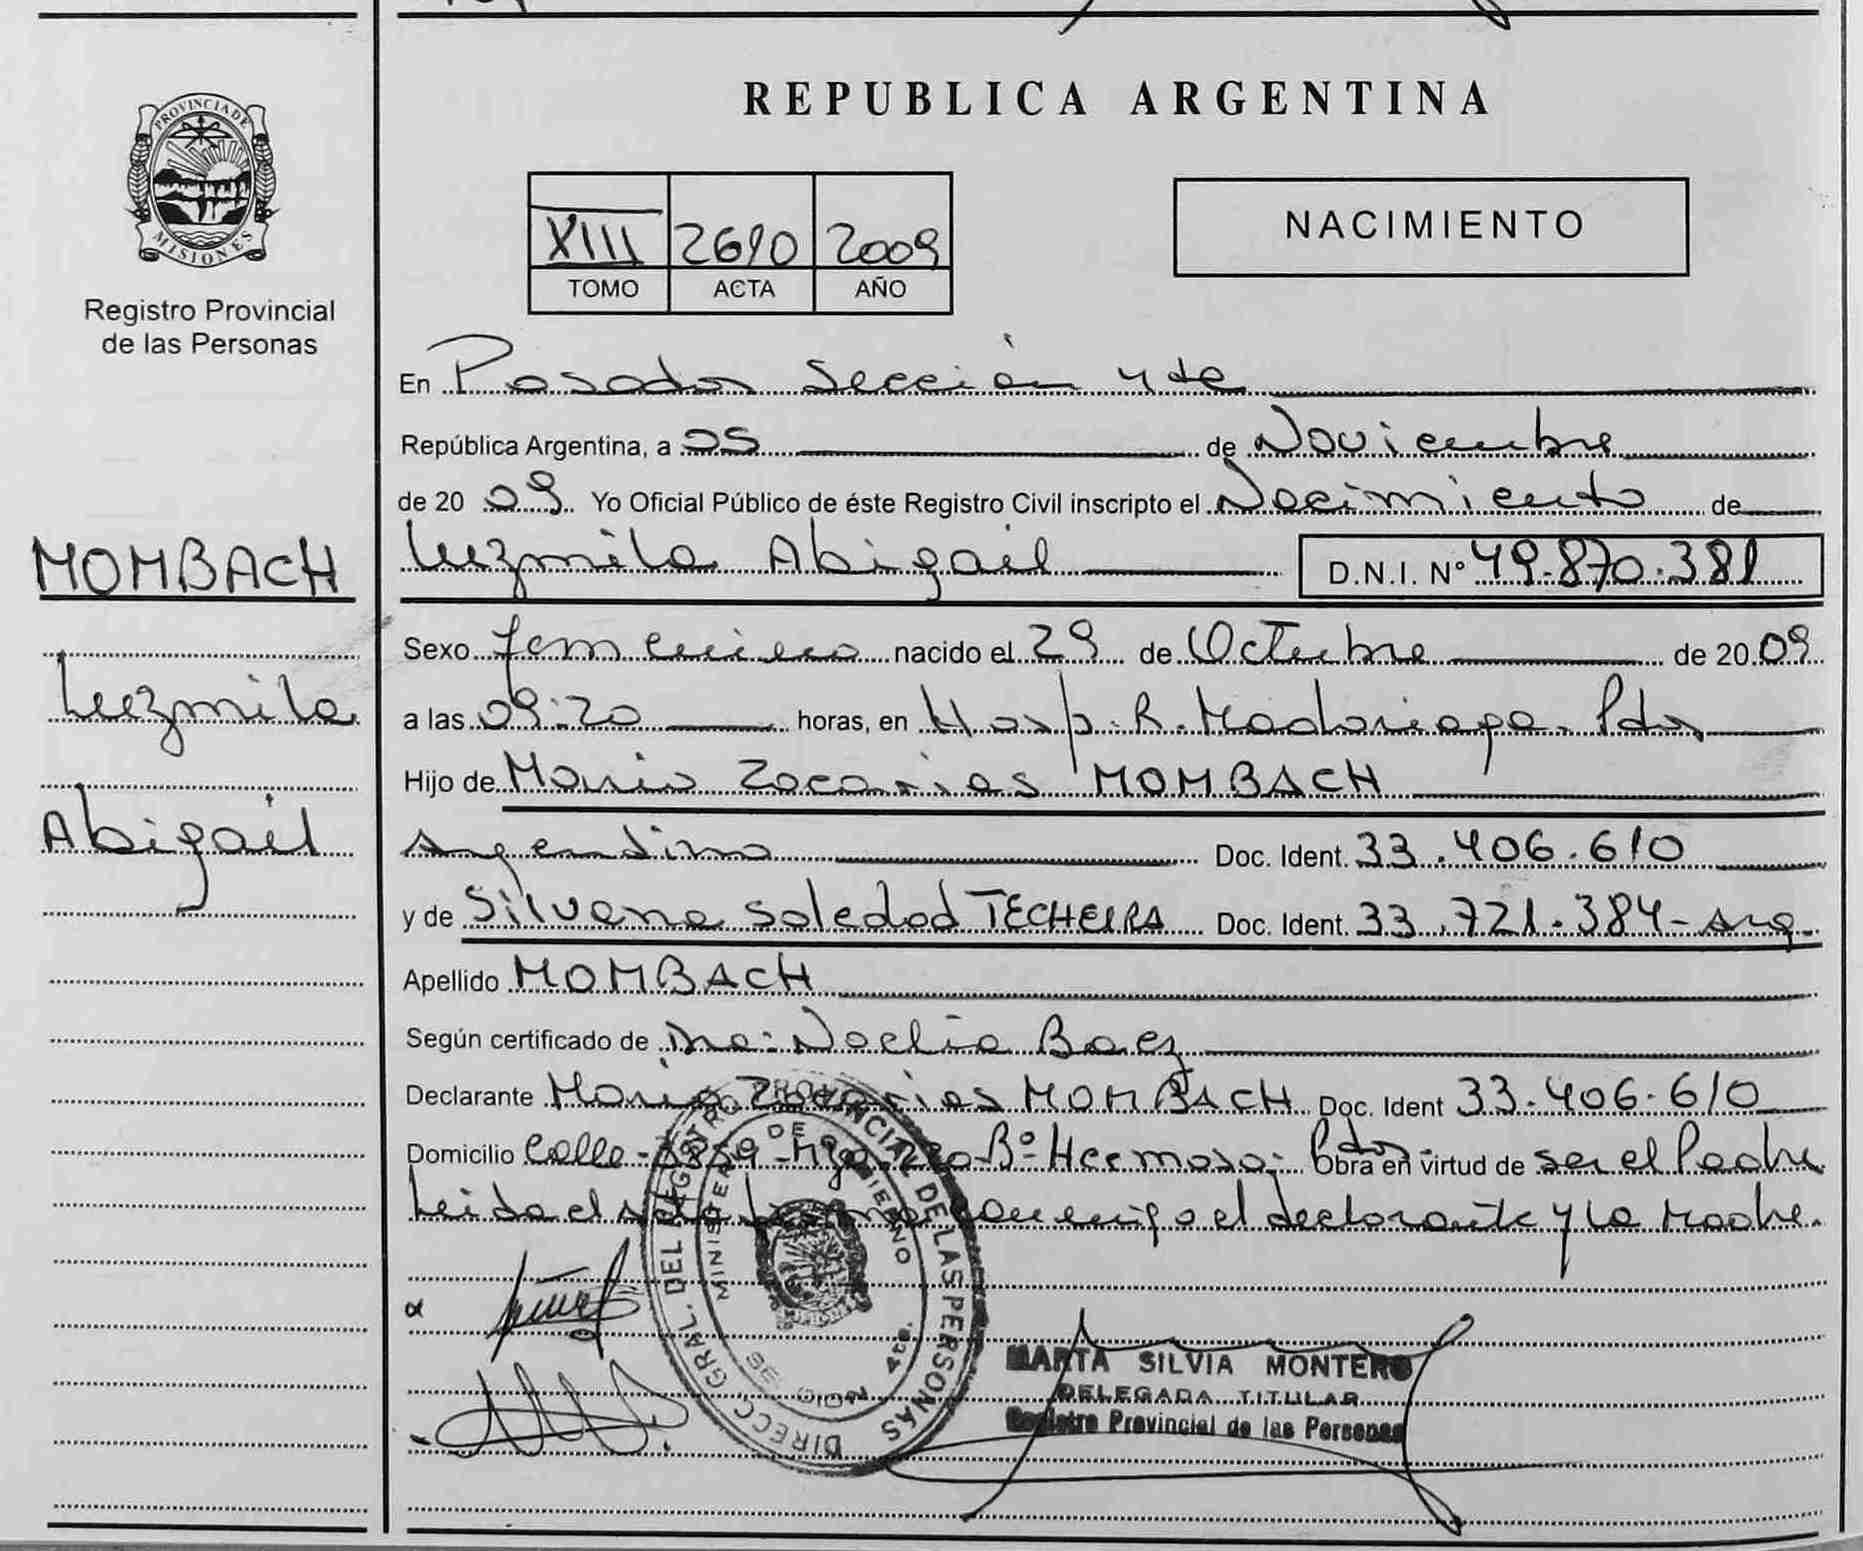 PROVINCIA DE
MISIONES
Registro Provincial
de las Personas
MOMBACH
Luzmila
Abigail
REPUBLICA ARGENTINA
XIII 2610 2009
TOMO ACTA AÑO
NACIMIENTO
En Posadas Sección 4ta
República Argentina, a 05 de Noviembre
de 20 09 Yo Oficial Público de éste Registro Civil inscripto el Nacimiento de
Luzmila Abigail D.N.I. Nº 49.870.381
Sexo femenino nacido el 29 de Octubre de 20 09
a las 09:20 horas, en Hosp. R. Madariaga. Pdas
Hijo de Mario Zacarias MOMBACH
Argentino Doc. Ident. 33.406.610
y de Silvana Soledad TECHEIRA Doc. Ident. 33.721.384 - Arg.
Apellido MOMBACH
Según certificado de Noelia Baez
Declarante Mario Zacarias MOMBACH Doc. Ident 33.406.610
Domicilio Calle Bº Hermoso. Pdas. Obra en virtud de ser el Padre
Leida el acta conmigo el declarante y la Madre.
DIRECC. GRAL. DEL REGISTRO PROVINCIAL DE LAS PERSONAS
MINISTERIO DE GOBIERNO
MARTA SILVIA MONTERO
DELEGADA TITULAR
Registro Provincial de las Personas